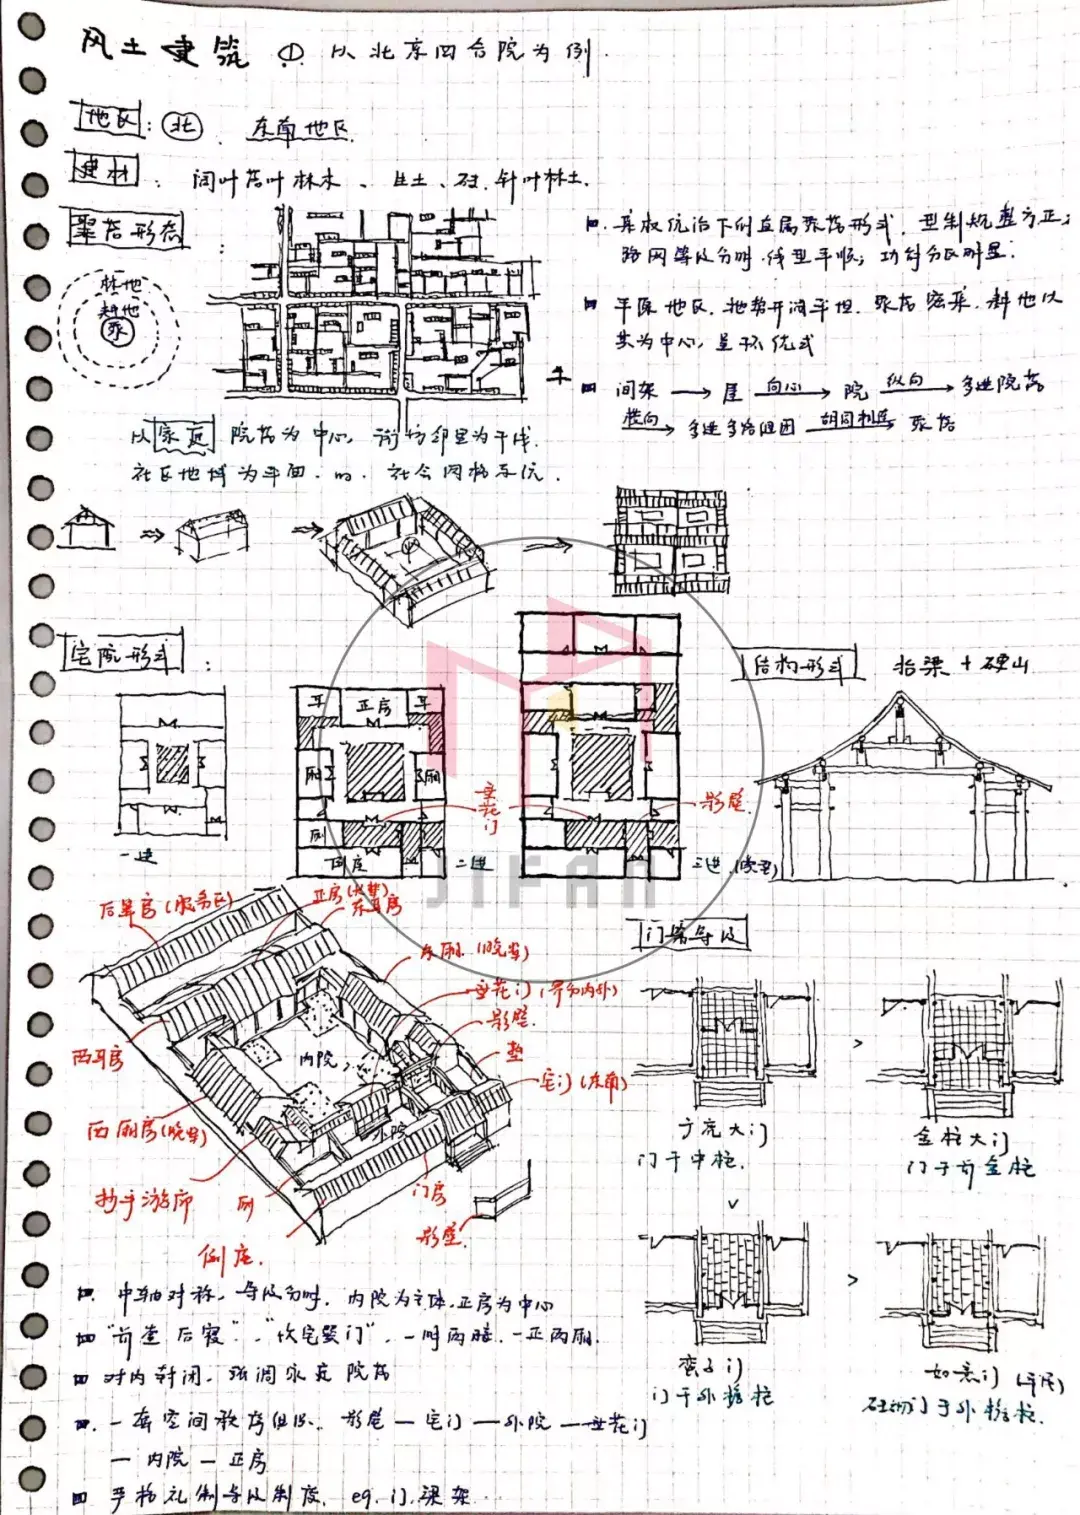 风土建筑 ① 以北京四合院为例.
地区：北 . 东南地区.
建材：阔叶落叶林木、生土、砖.针叶林土.
聚落形态：
林地
耕地
聚
路网等级分明.线型平顺；功能分区明显.
平原地区.地势开阔平坦.聚落密集.耕地以
其为中心，呈环绕式
间架 → 屋 向心→ 院 纵向→ 多进院落
横向→ 多进多路组团 胡同相连→ 聚落
以家庭院落为中心，街坊邻里为干线.
社区地域为平面.的.社会网格系统.
宅院形式：
结构形式 抬梁 + 硬山
耳 正房 耳
厢 厢
垂花门
影壁.
厕
倒座
一进
二进
三进.
门第等级
后罩房(服务区)
正房(长辈)
东耳房
东厢.(晚辈)
垂花门(界分内外)
影壁.
塾
宅门(东南)
西耳房
内院
外院
西厢房(晚辈)
抄手游廊
厕
门房
影壁.
倒座.
>
广亮大门
门于中柱.
金柱大门
门于前金柱
>
>
蛮子门
门于外檐柱
如意门
砖砌门于外檐柱.
中轴对称.等级分明.内院为主体.正房为中心
"前堂后寝"."坎宅巽门".一明两暗.一正两厢.
对内封闭.强调家庭院落
一套空间秩序组织.影壁—宅门—外院—垂花门
—内院—正房
严格礼制等级制度.eg.门.梁架.
JIFAN